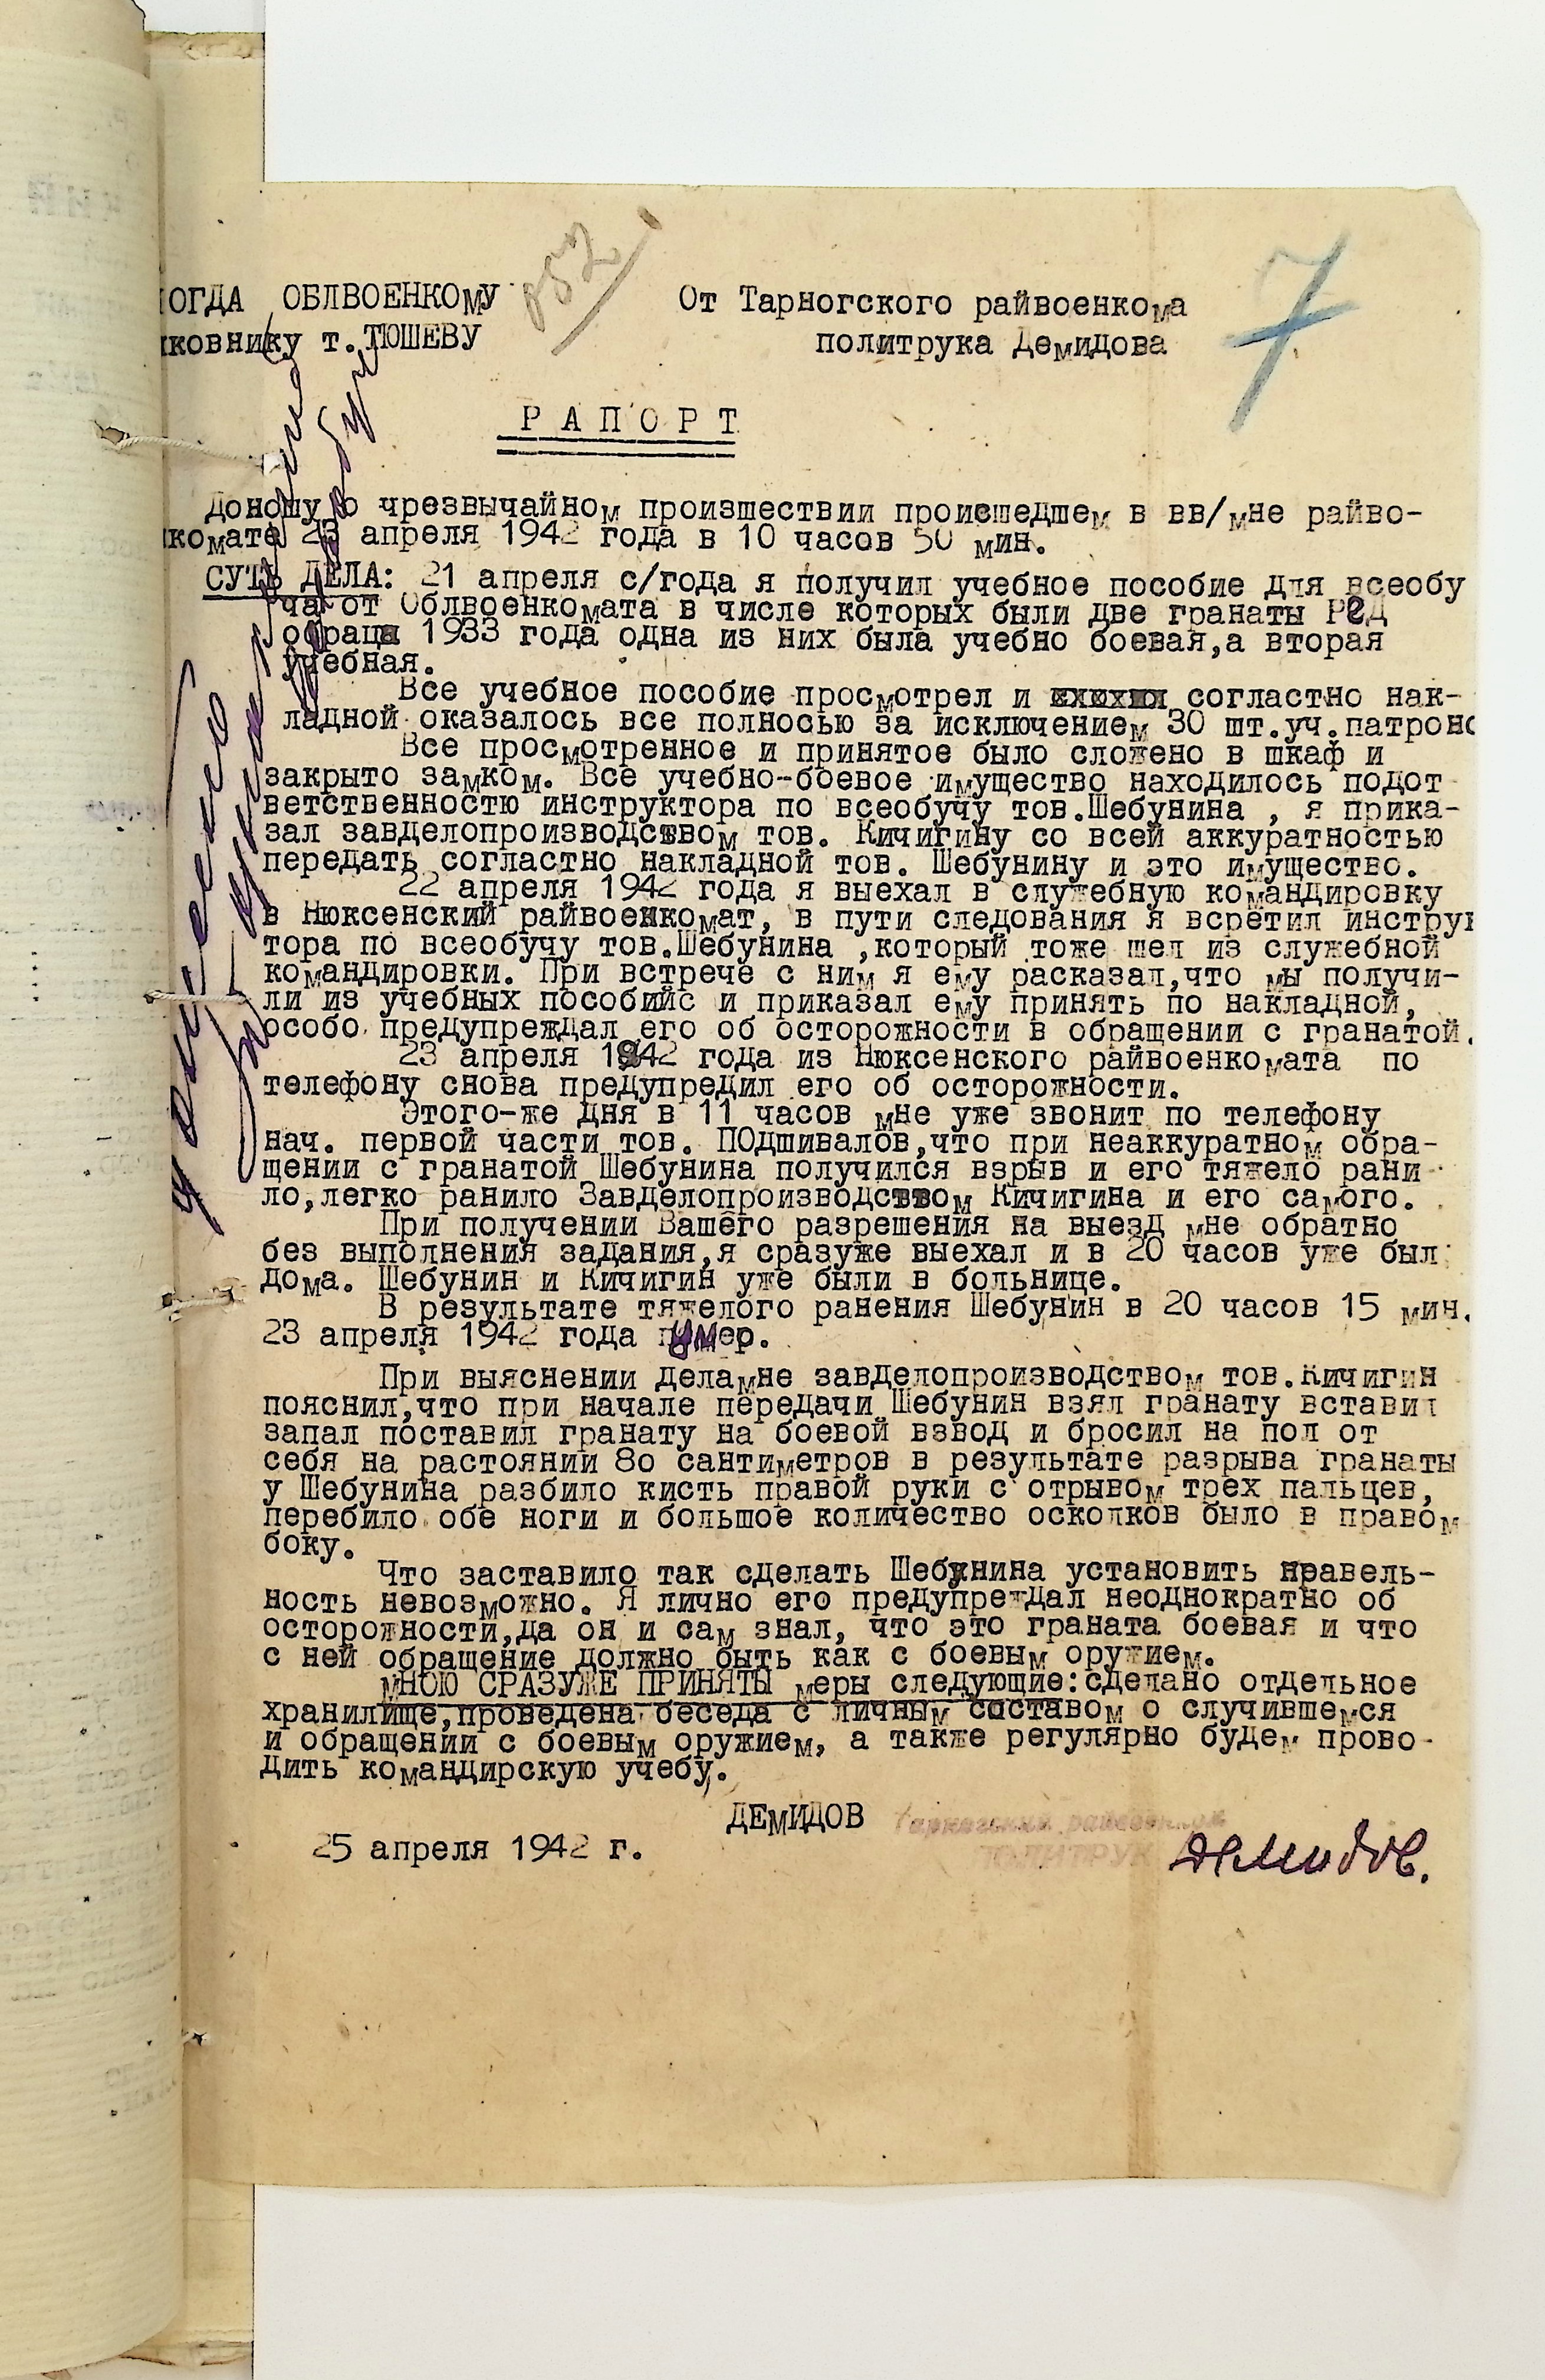 ОГДА ОБЛВОЕНКОМУ От Тарногского райвоенкома
ковнику т. ТЮШЕВУ политрука Демидова
7
РАПОРТ
Доношу о чрезвычайном произшествии происшедшем в вв/мне райво-
комате 23 апреля 1942 года в 10 часов 50 мин.
СУТЬ ДЕЛА: 21 апреля с/года я получил учебное пособие для всеобу
ча от Облвоенкомата в числе которых были две гранаты РГД
образца 1933 года одна из них была учебно боевая,а вторая
учебная.
Все учебное пособие просмотрел и согластно нак-
ладной оказалось все полносью за исключением 30 шт.уч.патроно
Все просмотренное и принятое было сложено в шкаф и
закрыто замком. Все учебно-боевое имущество находилось подот
ветственностю инструктора по всеобучу тов.Шебунина , я прика-
зал завделопроизводством тов. Кичигину со всей аккуратностью
передать согластно накладной тов. Шебунину и это имущество.
22 апреля 1942 года я выехал в служебную командировку
в Нюксенский райвоенкомат, в пути следования я всретил инструк
тора по всеобучу тов.Шебунина ,который тоже шел из служебной
командировки. При встрече с ним я ему расказал,что мы получи-
ли из учебных пособийс и приказал ему принять по накладной,
особо предупреждал его об осторожности в обращении с гранатой.
23 апреля 1942 года из Нюксенского райвоенкомата по
телефону снова предупредил его об осторожности.
Этого-же дня в 11 часов мне уже звонит по телефону
нач. первой части тов. ПОдшивалов,что при неаккуратном обра-
щении с гранатой Шебунина получился взрыв и его тяжело рани
ло,легко ранило Завделопроизводством Кичигина и его самого.
При получении Вашего разрешения на выезд мне обратно
без выполнения задания,я сразуже выехал и в 20 часов уже был
дома. Шебунин и Кичигин уже были в больнице.
В результате тяжелого ранения Шебунин в 20 часов 15 мин.
23 апреля 1942 года умер.
При выяснении деламне завделопроизводством тов.Кичигин
пояснил,что при начале передачи Шебунин взял гранату вставил
запал поставил гранату на боевой взвод и бросил на пол от
себя на растоянии 8о сантиметров в результате разрыва гранаты
у Шебунина разбило кисть правой руки с отрывом трех пальцев,
перебило обе ноги и большое количество осколков было в правом
боку.
Что заставило так сделать Шебунина установить правель-
ность невозможно. Я лично его предупреждал неоднократно об
осторожности,да он и сам знал, что это граната боевая и что
с ней обращение должно быть как с боевым оружием.
МНОЮ СРАЗУЖЕ ПРИНЯТЫ меры следующие:сделано отдельное
хранилище,проведена беседа с личным составом о случившемся
и обращении с боевым оружием, а также регулярно будем прово-
дить командирскую учебу.
ДЕМИДОВ Тарногский райвоенком
ПОЛИТРУК Демидов.
25 апреля 1942 г.